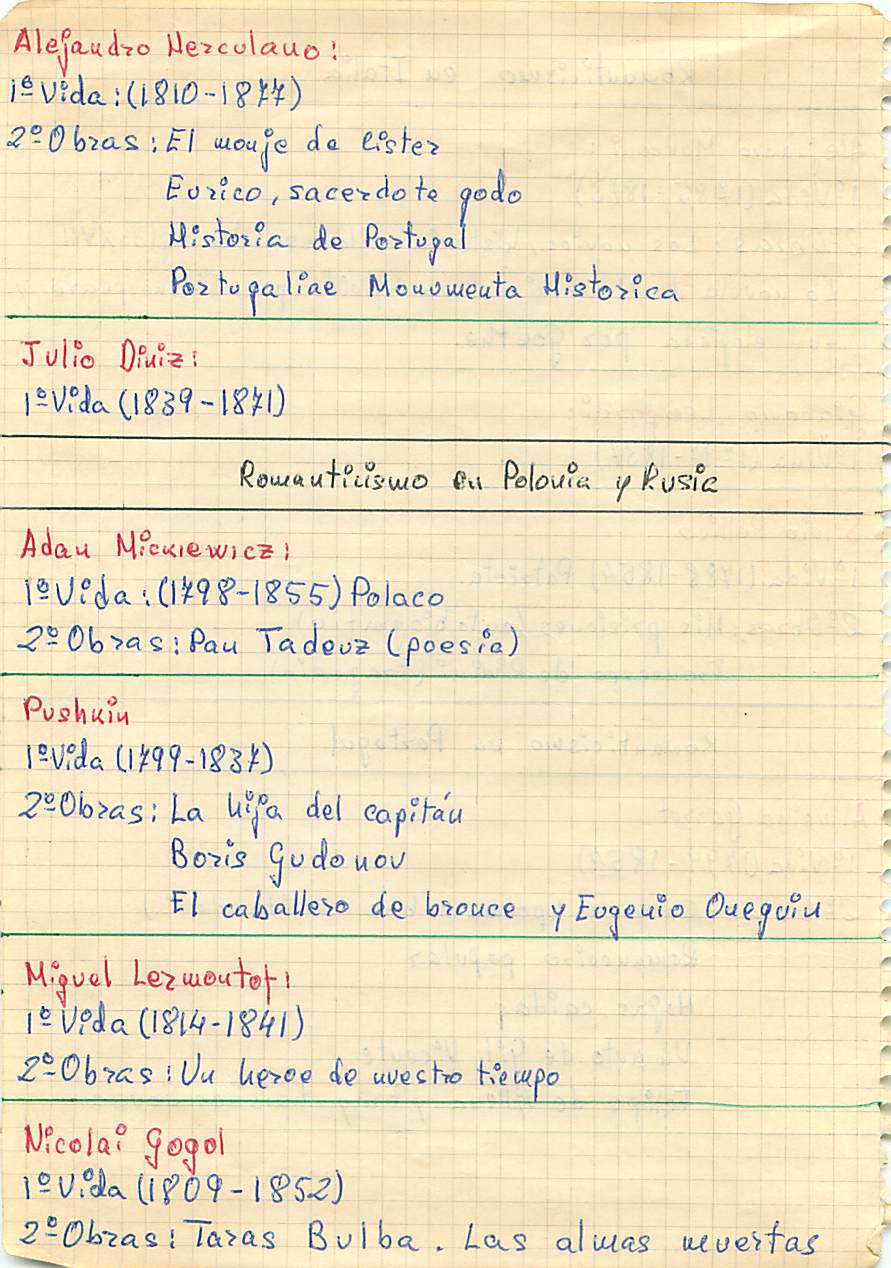 Alejandro Herculano:
1º Vida: (1810-1877)
2º Obras: El monje de Cister
Eurico, sacerdote godo
Historia de Portugal
Portugaliae Monumenta Historica
Julio Diniz:
1º Vida (1839-1871)
Romanticismo en Polonia y Rusia
Adan Mickiewicz:
1º Vida: (1798-1855) Polaco
2º Obras: Pan Tadeuz (poesía)
Pushkin
1º Vida (1799-1837)
2º Obras: La hija del capitán
Boris Gudonov
El caballero de bronce y Eugenio Oneguin
Miguel Lermontof:
1º Vida (1814-1841)
2º Obras: Un heroe de nuestro tiempo
Nicolai Gogol
1º Vida (1809-1852)
2º Obras: Taras Bulba. Las almas muertas